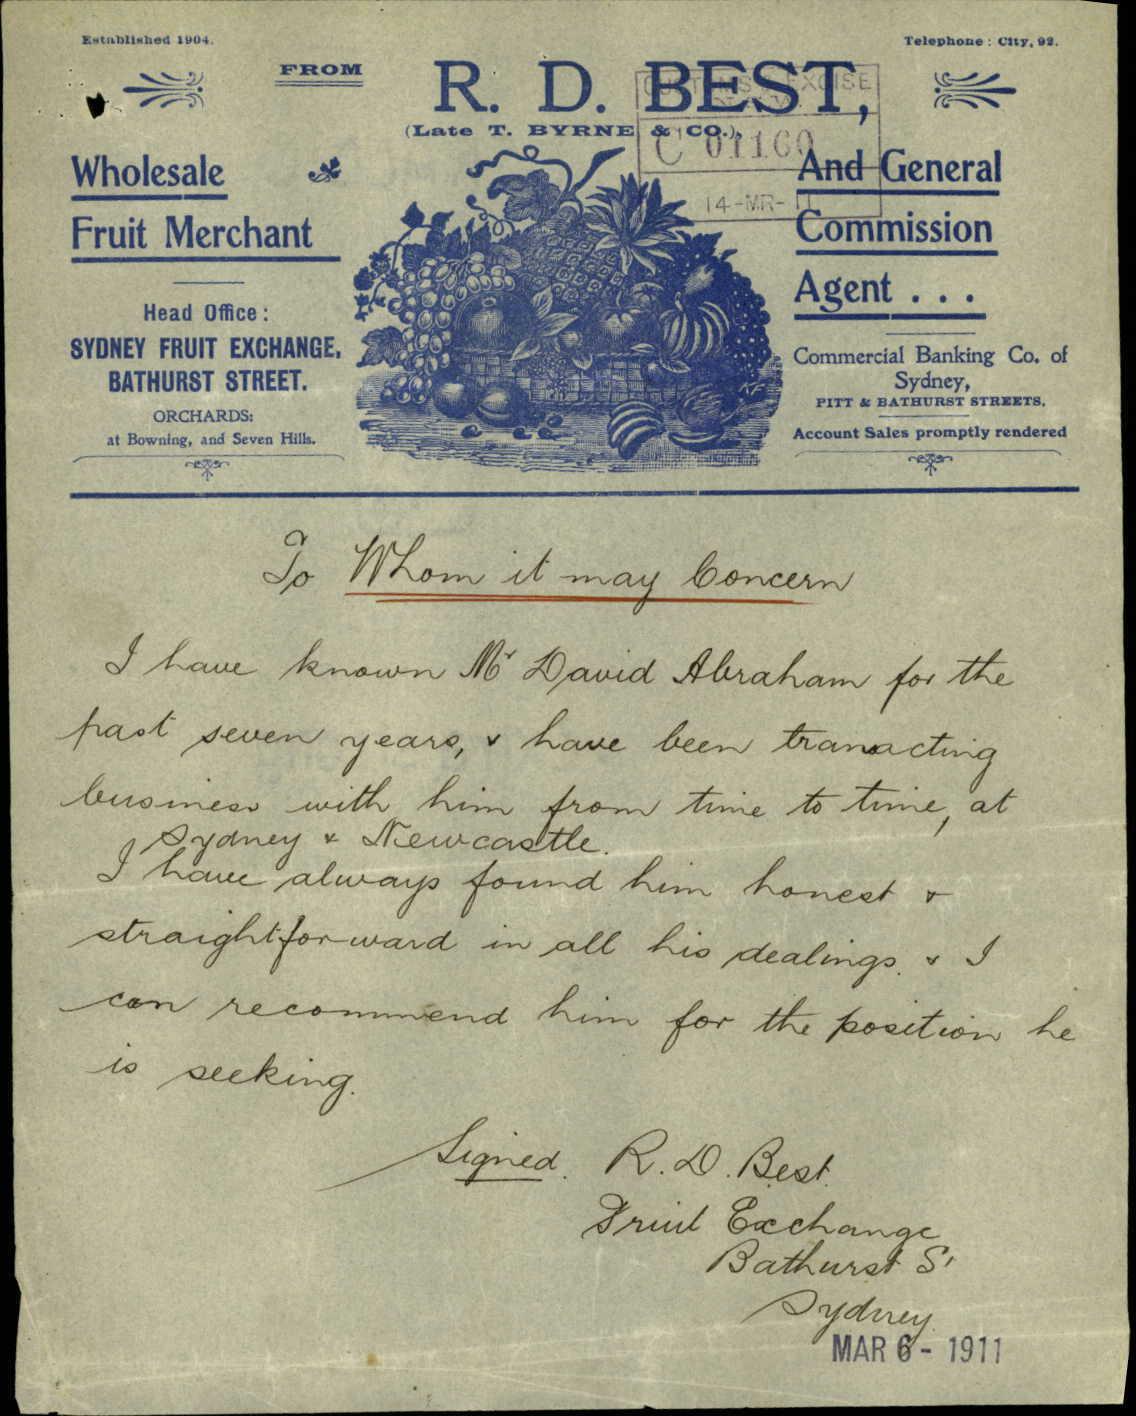 Established 1904.
Telephone: City, 92.
FROM
R. D. BEST,
(Late T. BYRNE & CO.),
CUSTOMS EXCISE
C 01160
14-MR-11
Wholesale
Fruit Merchant
Head Office:
SYDNEY FRUIT EXCHANGE,
BATHURST STREET.
ORCHARDS:
at Bowning, and Seven Hills.
And General
Commission
Agent . . .
Commercial Banking Co. of
Sydney,
PITT & BATHURST STREETS.
Account Sales promptly rendered
KF
To Whom it may Concern
I have known Mr David Abraham for the
past seven years, & have been transacting
business with him from time to time, at
Sydney & Newcastle.
I have always found him honest &
straightforward in all his dealings. & I
can recommend him for the position he
is seeking.
Signed. R. D. Best.
Fruit Exchange
Bathurst St
Sydney.
MAR 6 - 1911